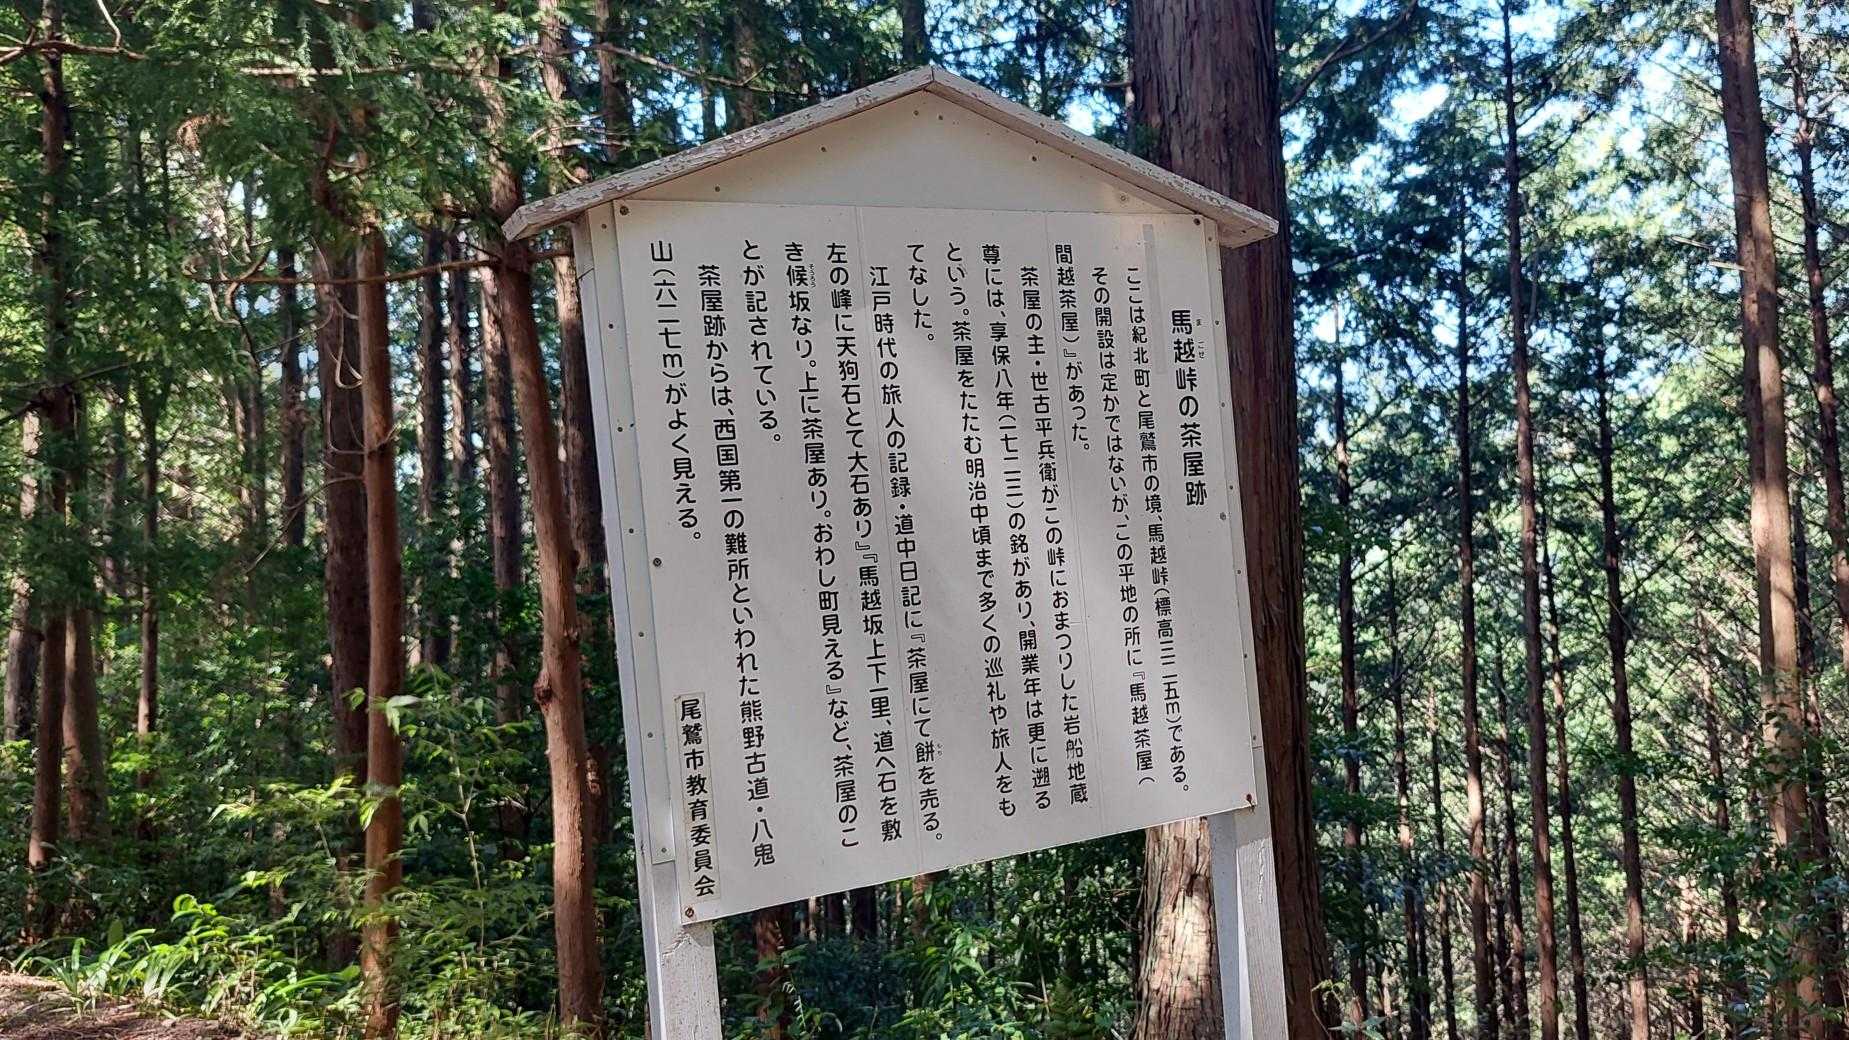 馬越峠の茶屋跡
ここは紀北町と尾鷲市の境、馬越峠(標高三二五m)である。
その開設は定かではないが、この平地の所に『馬越茶屋(
間越茶屋)』があった。
茶屋の主・世古平兵衛がこの峠におまつりした岩船地蔵
尊には、享保八年(一七二三)の銘があり、開業年は更に遡る
という。茶屋をたたむ明治中頃まで多くの巡礼や旅人をも
てなした。
江戸時代の旅人の記録・道中日記に『茶屋にて餅を売る。
左の峰に天狗石とて大石あり』『馬越坂上下一里、道へ石を敷
き候坂なり。上に茶屋あり。おわし町見える』など、茶屋のこ
とが記されている。
茶屋跡からは、西国第一の難所といわれた熊野古道・八鬼
山(六二七m)がよく見える。
尾鷲市教育委員会